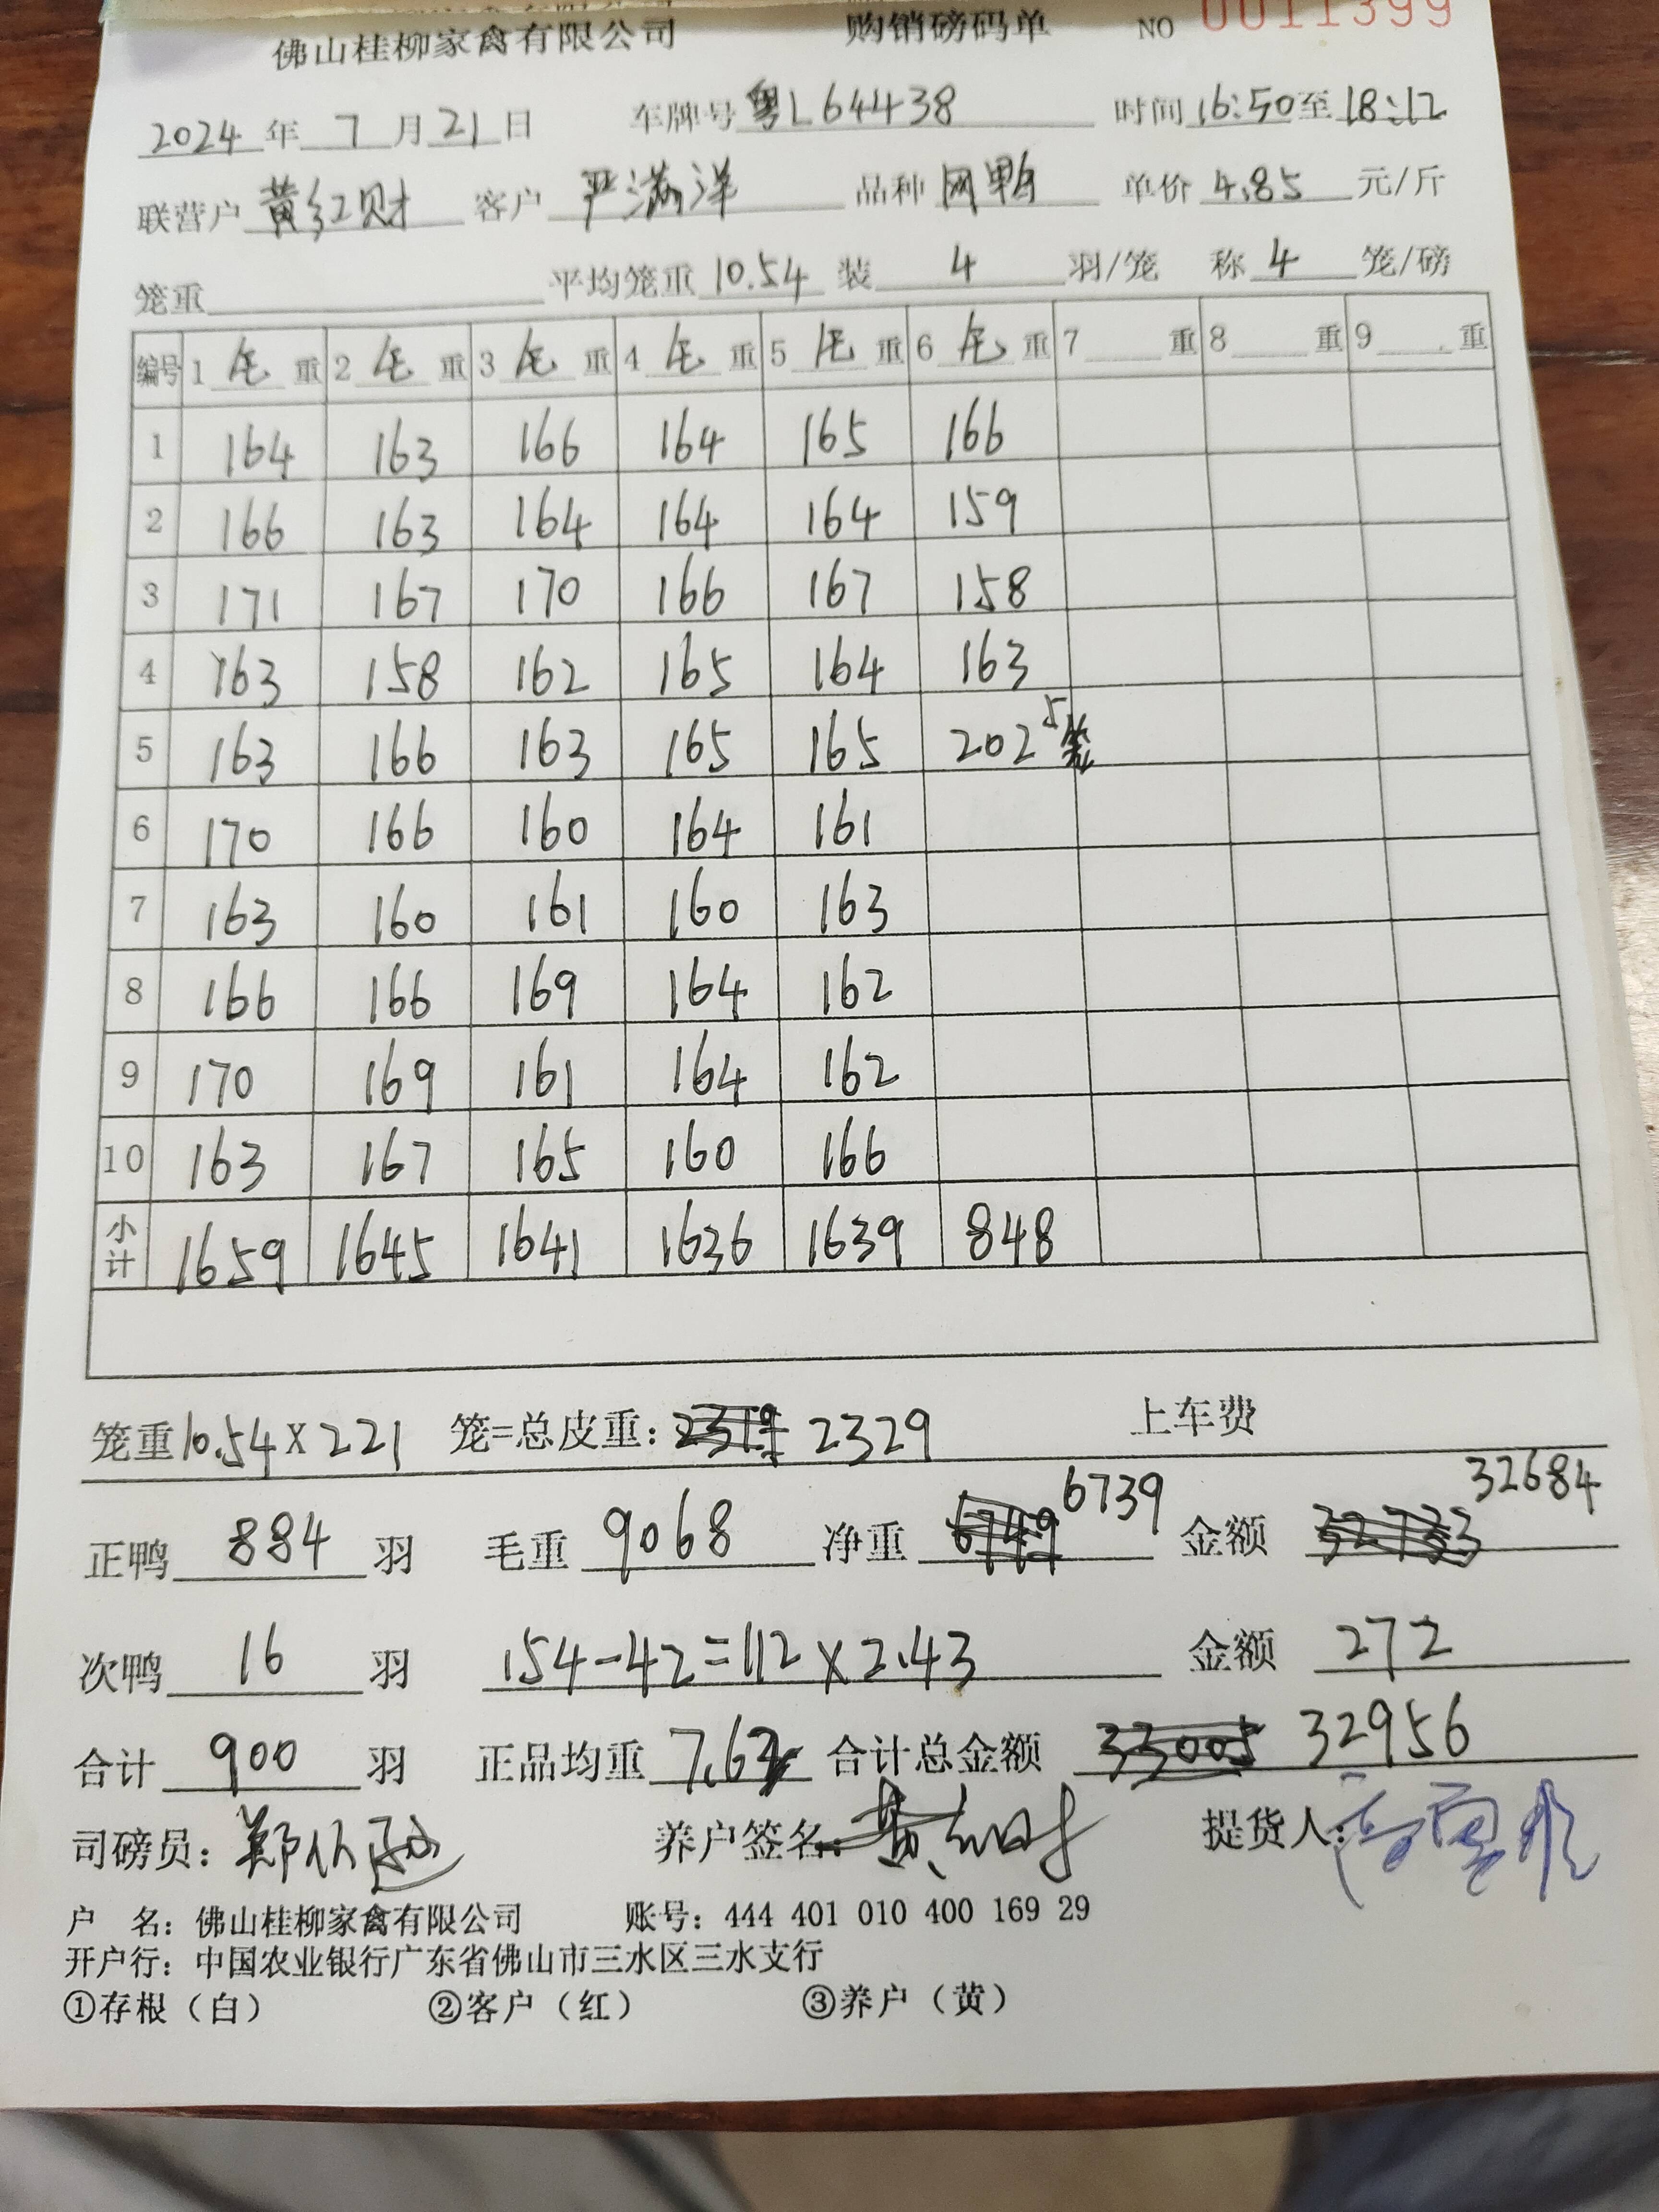 佛山桂柳家禽有限公司 购销磅码单 NO 0011399
2024年 7月21日 车牌号 粤L64438 时间 16:50至18:12
联营户 黄红财 客户 严满洋 品种 网鸭 单价 4.85 元/斤
笼重 平均笼重 10.54 装 4 羽/笼 称 4 笼/磅
编号 1 毛 重 2 毛 重 3 毛 重 4 毛 重 5 毛 重 6 毛 重 7 重 8 重 9 重
1 164 163 166 164 165 166
2 166 163 164 164 164 159
3 171 167 170 166 167 158
4 163 158 162 165 164 163
5 163 166 163 165 165 202 5笼
6 170 166 160 164 161
7 163 160 161 160 163
8 166 166 169 164 162
9 170 169 161 164 162
10 163 167 165 160 166
小计 1659 1645 1641 1636 1639 848
笼重10.54×221 笼=总皮重: 2329 上车费
正鸭 884 羽 毛重 9068 净重 6739 金额 32684
次鸭 16 羽 154-42=112×2.43 金额 272
合计 900 羽 正品均重 7.62 合计总金额 33005 32956
司磅员: 养户签名: 黄红财 提货人:
户 名: 佛山桂柳家禽有限公司 账号: 444 401 010 400 169 29
开户行: 中国农业银行广东省佛山市三水区三水支行
①存根（白） ②客户（红） ③养户（黄）